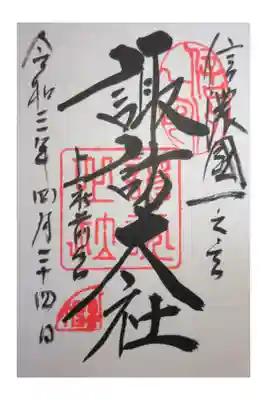 信濃國一之宮
諏訪大社
上社前宮
令和三年四月二十四日